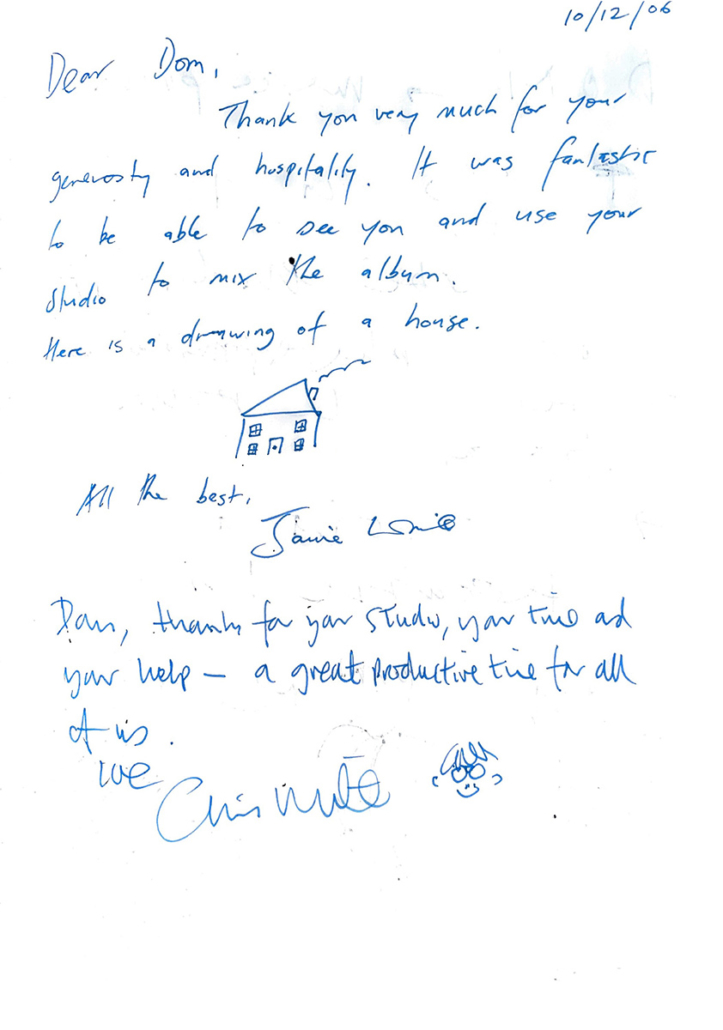 10/12/06
Dear Dom,
Thank you very much for your
generosty and hospitality. It was fantastic
to be able to see you and use your
studio to mix the album.
Here is a drawing of a house.
All the best,
Jamie
Dom, thanks for your studio, your time and
your help – a great productive time for all
of us.
Chris White